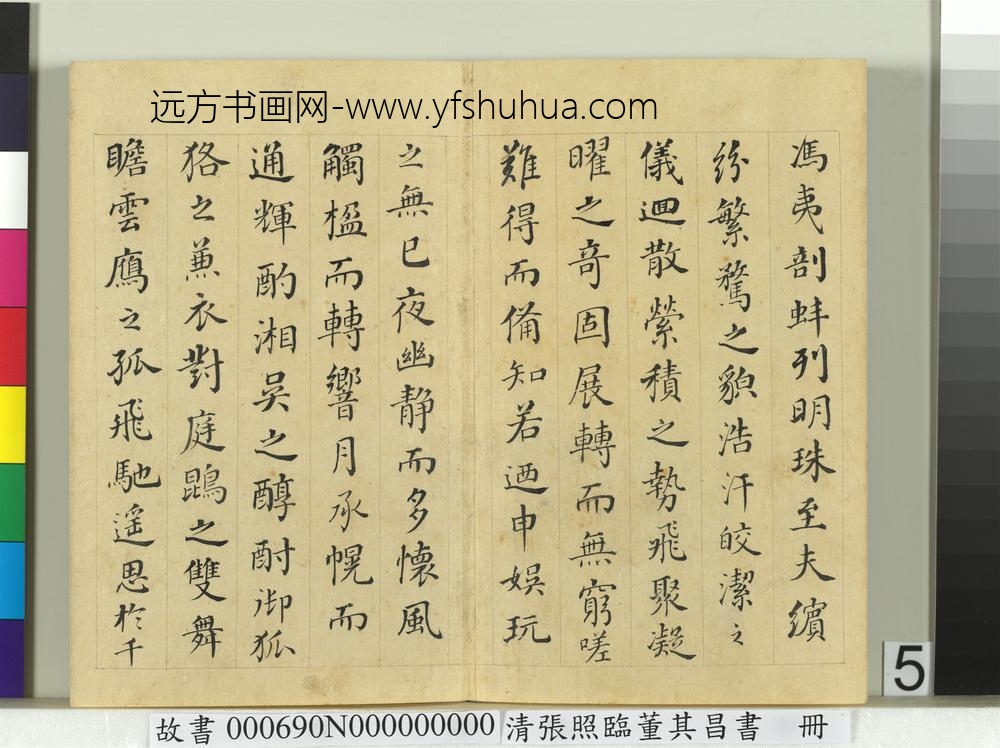 远方书画网-www.yfshuhua.com
馮夷剖蚌列明珠至夫繽
紛繁騖之貌浩汗皎潔之
儀迴散縈積之勢飛聚凝
曜之奇固展轉而無窮嗟
難得而俻知若迺申娛玩
之無已夜幽靜而多懷風
觸楹而轉響月承幌而
通輝酌湘吳之醇酎御狐
狢之兼衣對庭鵾之雙舞
瞻雲鴈之孤飛馳遥思於千
5
故書 000690N000000000 清張照臨董其昌書 冊